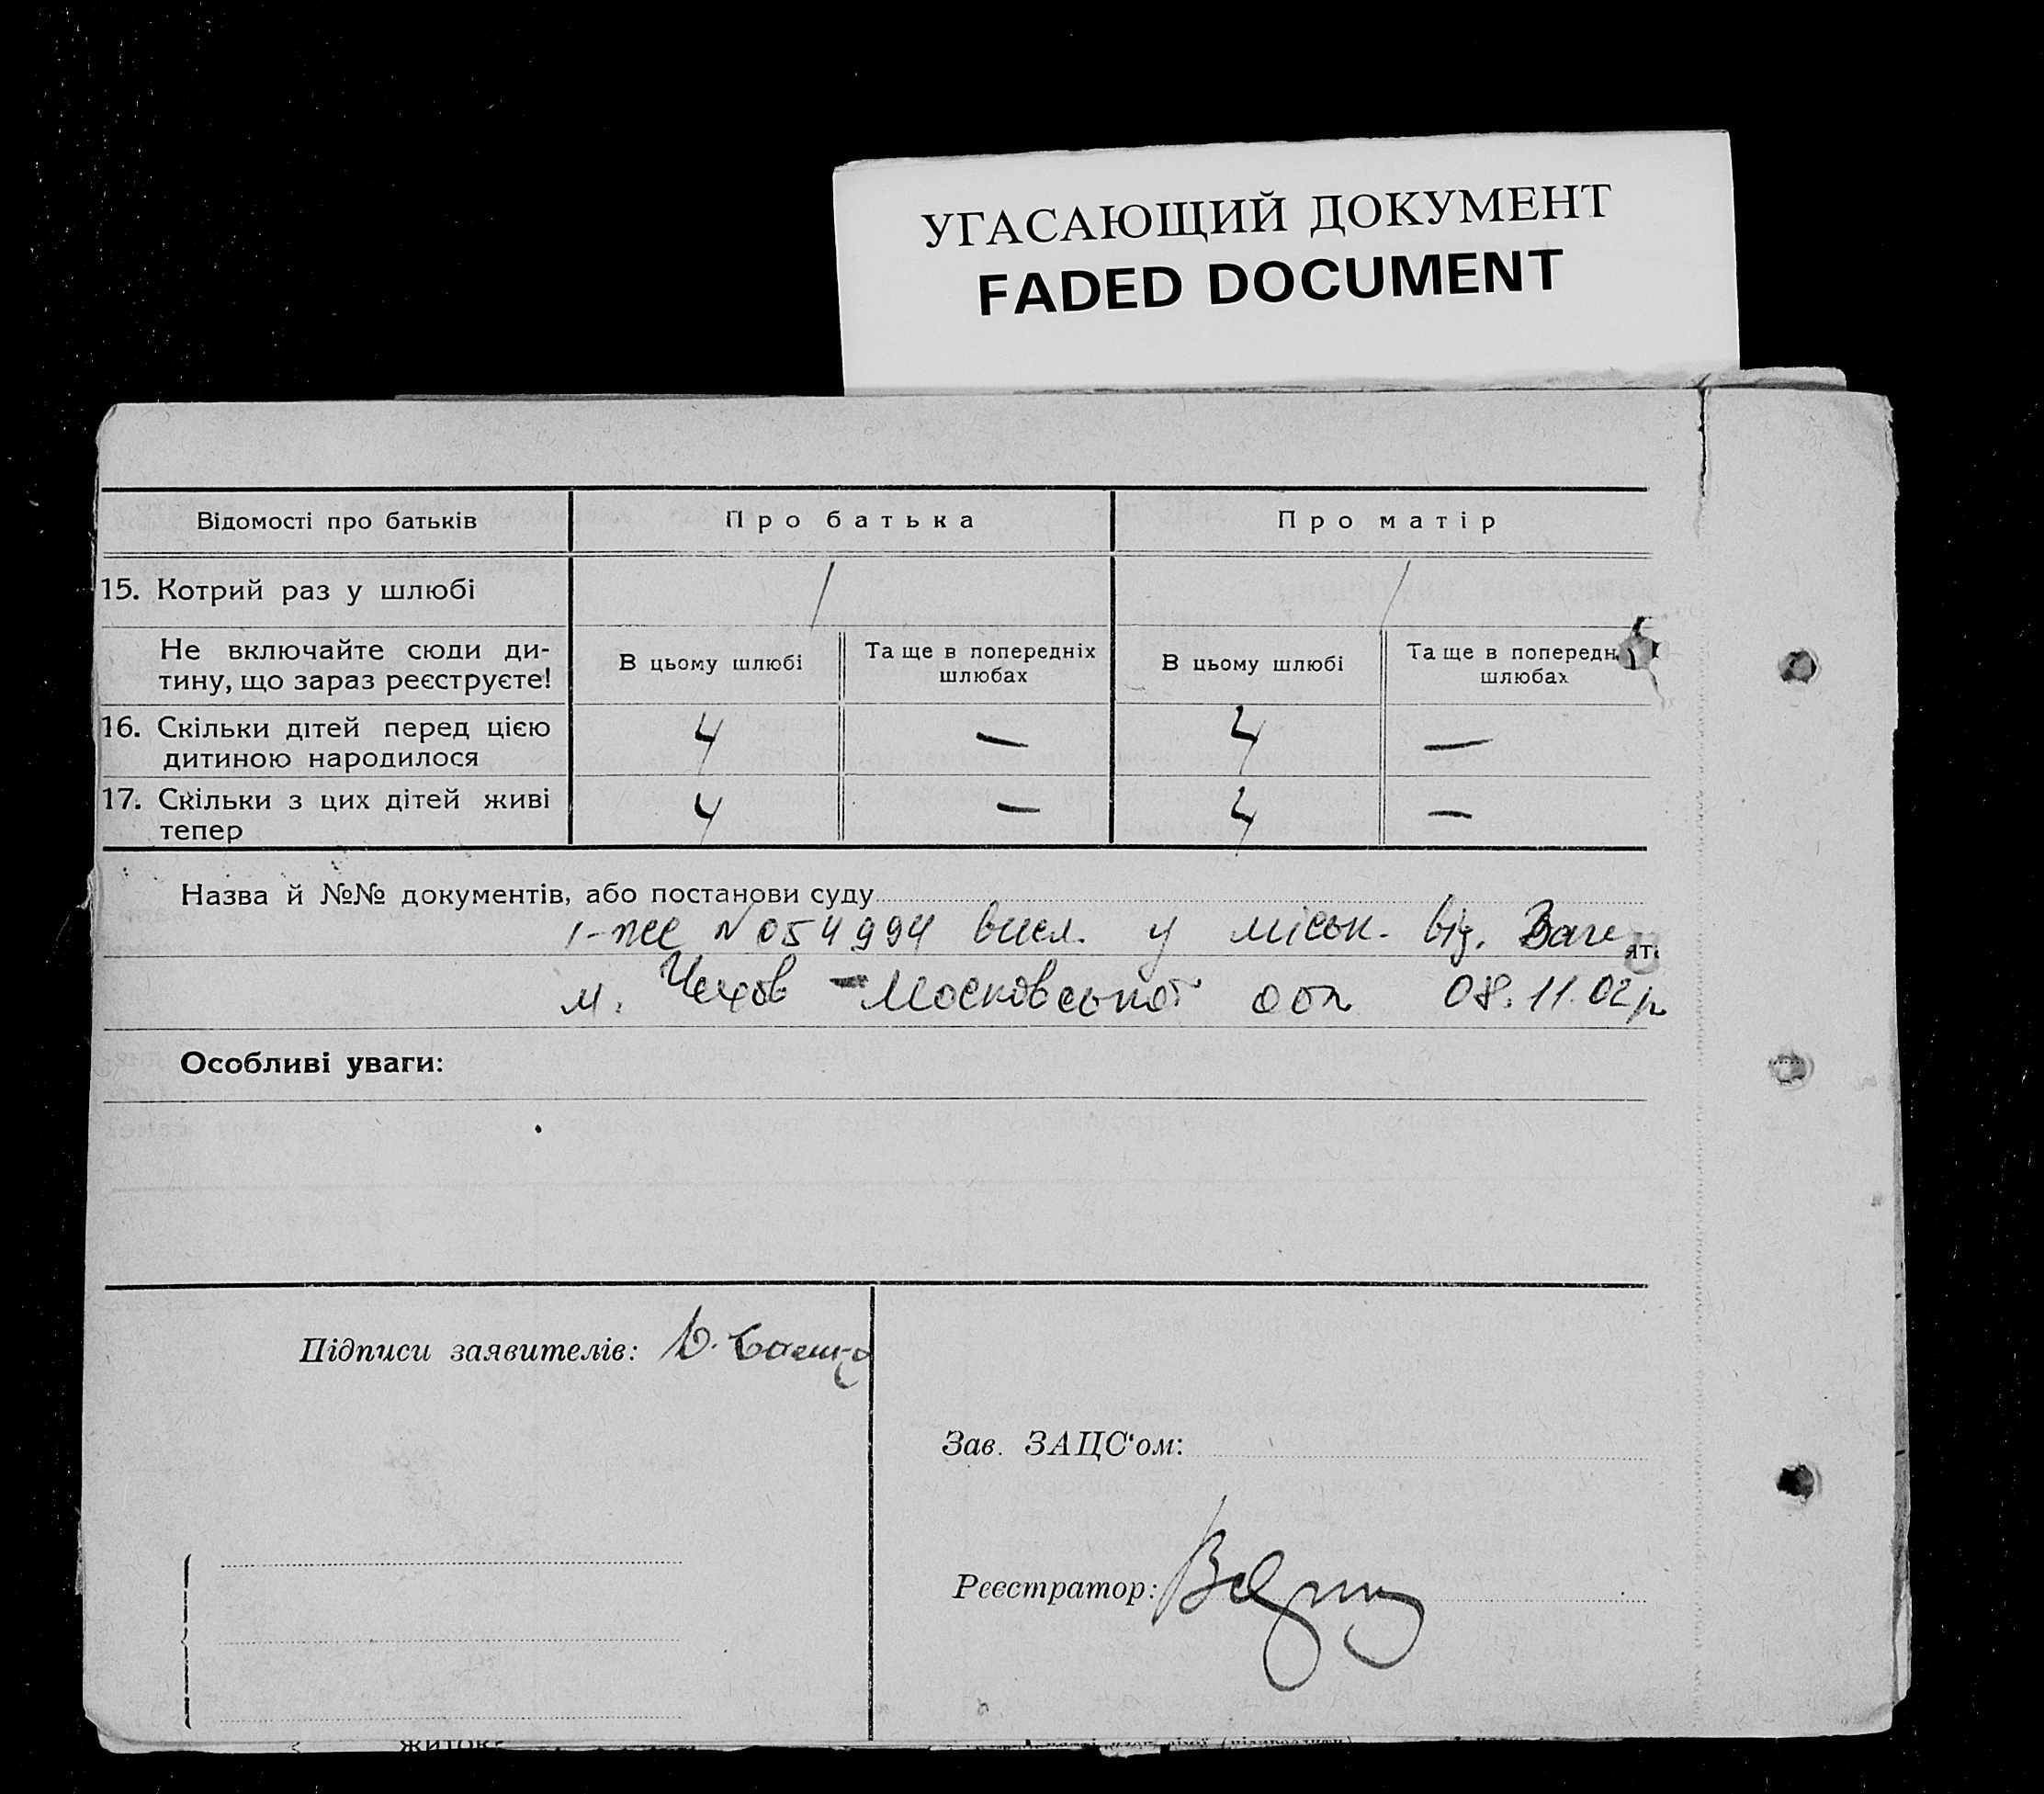 УГАСАЮЩИЙ ДОКУМЕНТ
FADED DOCUMENT
Відомості про батьків
Про батька
Про матір
15. Котрий раз у шлюбі
/
/
Не включайте сюди ди-
тину, що зараз реєструєте!
В цьому шлюбі
Та ще в попередніх
шлюбах
В цьому шлюбі
Та ще в попередн
шлюбах
16. Скільки дітей перед цією
дитиною народилося
4
—
4
—
17. Скільки з цих дітей живі
тепер
4
—
4
—
Назва й №№ документів, або постанови суду
N 054994 у міськ. від.
м. Чехов Московської обл 08.11.02р
Особливі уваги:
Підписи заявителів:
Зав. ЗАЦС'ом:
Реєстратор:
житок